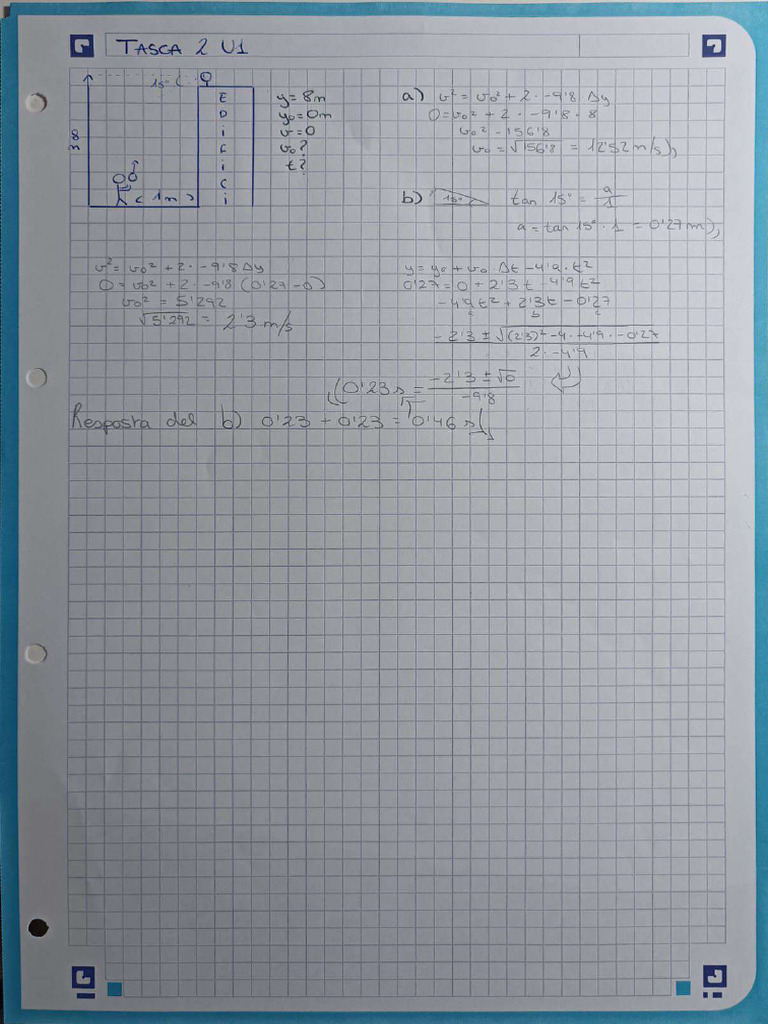 TASCA 2 U1
15°
8 m
E
D
i
F
i
C
i
1m
y = 8m
y₀ = 0m
v = 0
v₀?
t?
a) v² = v₀² + 2 · -9'8 Δy
0 = v₀² + 2 · -9'8 · 8
v₀² = 156'8
v₀ = √156'8 = 12'52 m/s
b) 15° tan 15° = a/1
a = tan 15° · 1 = 0'27 m
v² = v₀² + 2 · -9'8 Δy
0 = v₀² + 2 · -9'8 (0'27-0)
v₀² = 5'292
√5'292 = 2'3 m/s
y = y₀ + v₀ · Δt - 4'9 · t²
0'27 = 0 + 2'3t - 4'9t²
-4'9t² + 2'3t - 0'27
a b c
-2'3 ± √(2'3)² - 4 · -4'9 · -0'27 / 2 · -4'9
0'23 s = -2'3 ± √0 / -9'8
Resposta del b) 0'23 + 0'23 = 0'46 s